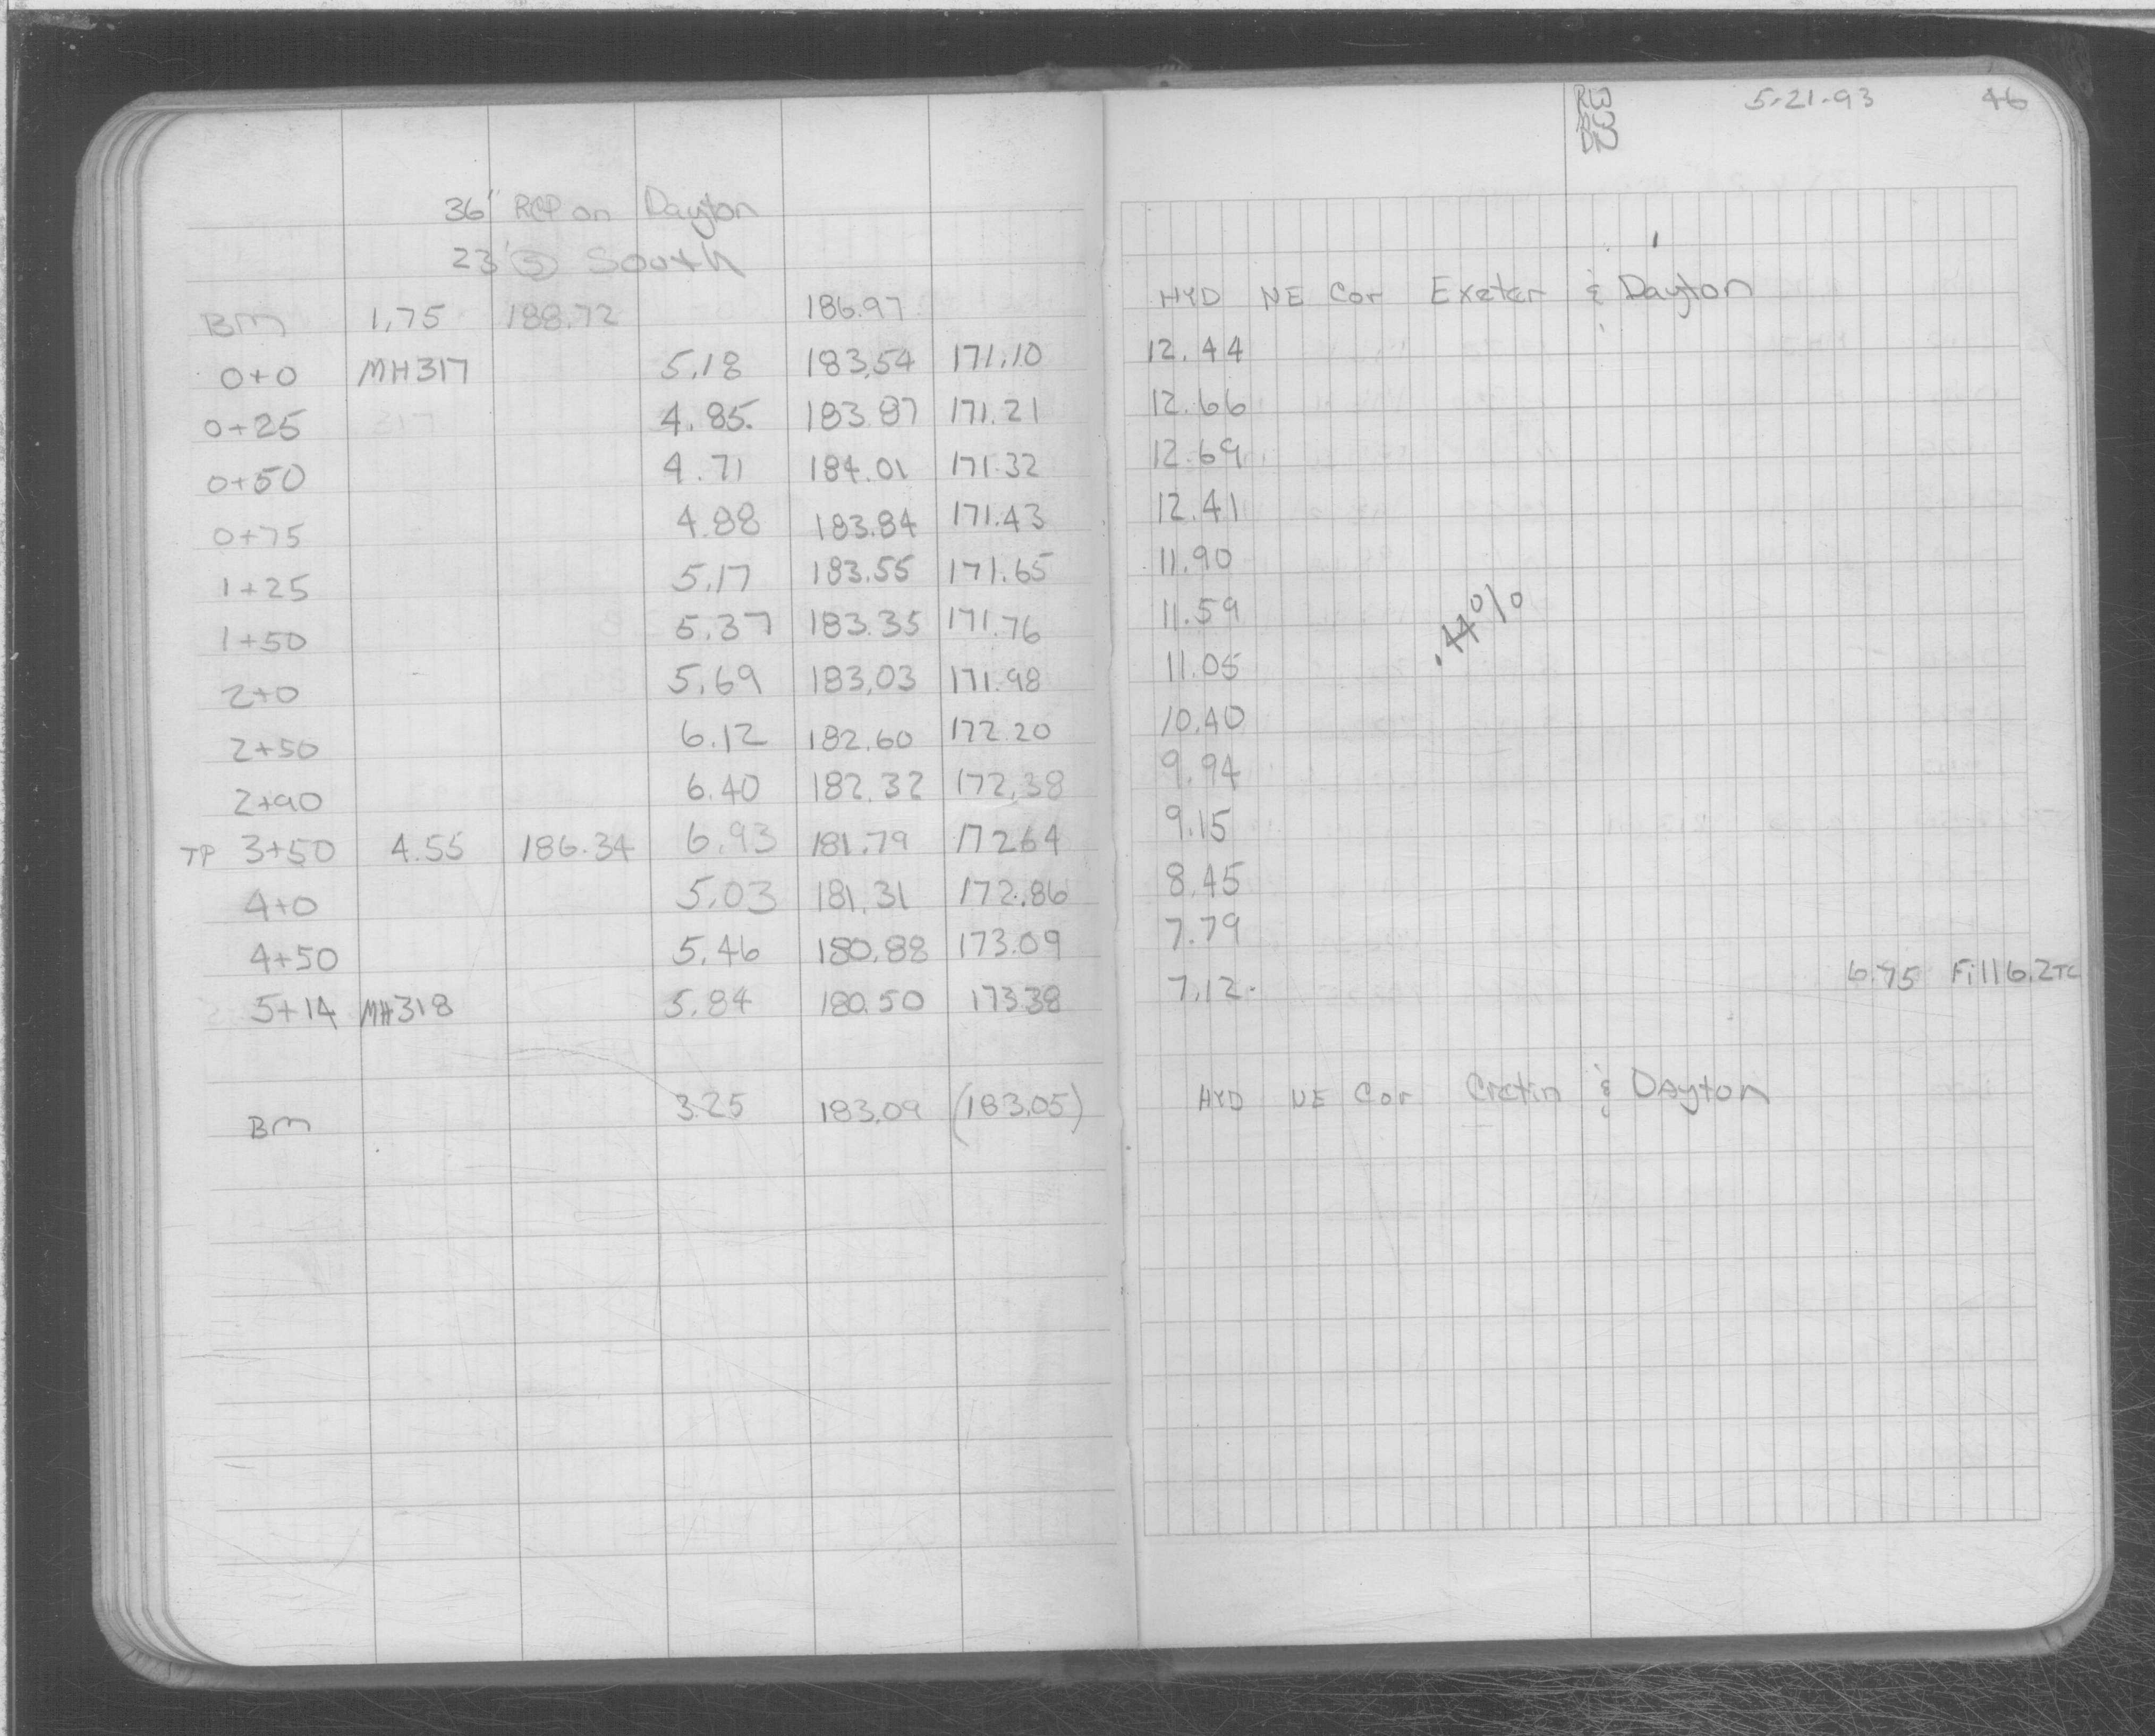 5-21-93 46
36" RCP on Dayton
23' South
BM 1.75 188.72 186.97 HYD NE Cor Exeter & Dayton
0+0 MH317 5.18 183.54 171.10 12.44
0+25 317 4.85 183.87 171.21 12.66
0+50 4.71 184.01 171.32 12.69
0+75 4.88 183.84 171.43 12.41
1+25 5.17 183.55 171.65 11.90
1+50 5.37 183.35 171.76 11.59
.44%
2+0 5.69 183.03 171.98 11.05
2+50 6.12 182.60 172.20 10.40
2+90 6.40 182.32 172.38 9.94
TP 3+50 4.55 186.34 6.93 181.79 172.64 9.15
4+0 5.03 181.31 172.86 8.45
4+50 5.46 180.88 173.09 7.79
5+14 MH318 5.84 180.50 173.38 7.12 6.75 Fill 6.2 TC
BM 3.25 183.09 (183.05) HYD NE Cor Cretin & Dayton